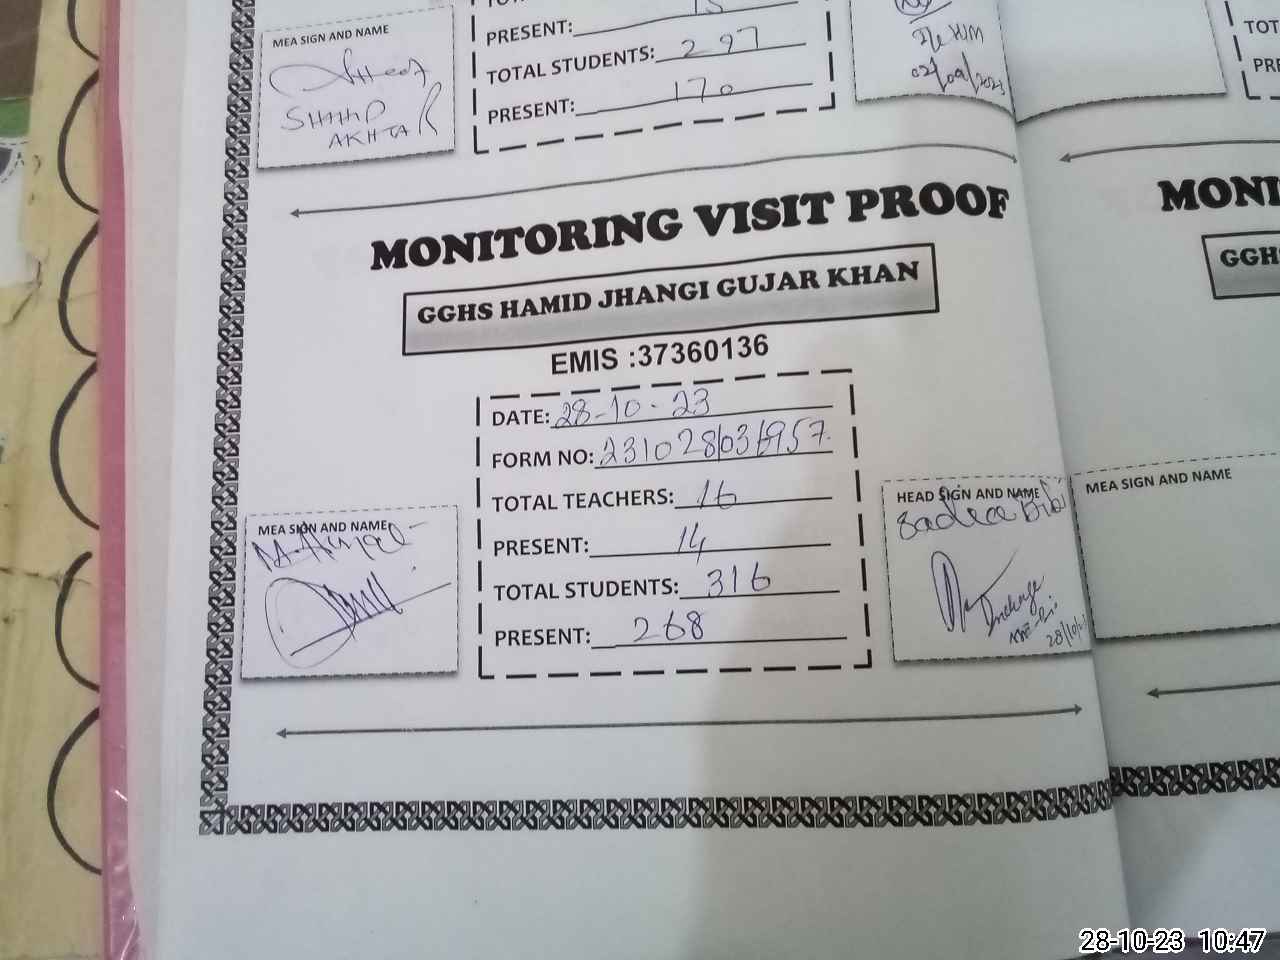 MEA SIGN AND NAME
SHAHID
AKHTAR
PRESENT: 15
TOTAL STUDENTS: 297
PRESENT: 170
02/09/2023
TOT
PRE
MONITORING VISIT PROOF
GGHS HAMID JHANGI GUJAR KHAN
EMIS :37360136
DATE: 28-10-23
FORM NO: 231028036957
TOTAL TEACHERS: 16
PRESENT: 14
TOTAL STUDENTS: 316
PRESENT: 268
MEA SIGN AND NAME
HEAD SIGN AND NAME
Sadeea Bibi
Incharge
28/10/
MONI
GGH
MEA SIGN AND NAME
28-10-23 10:47